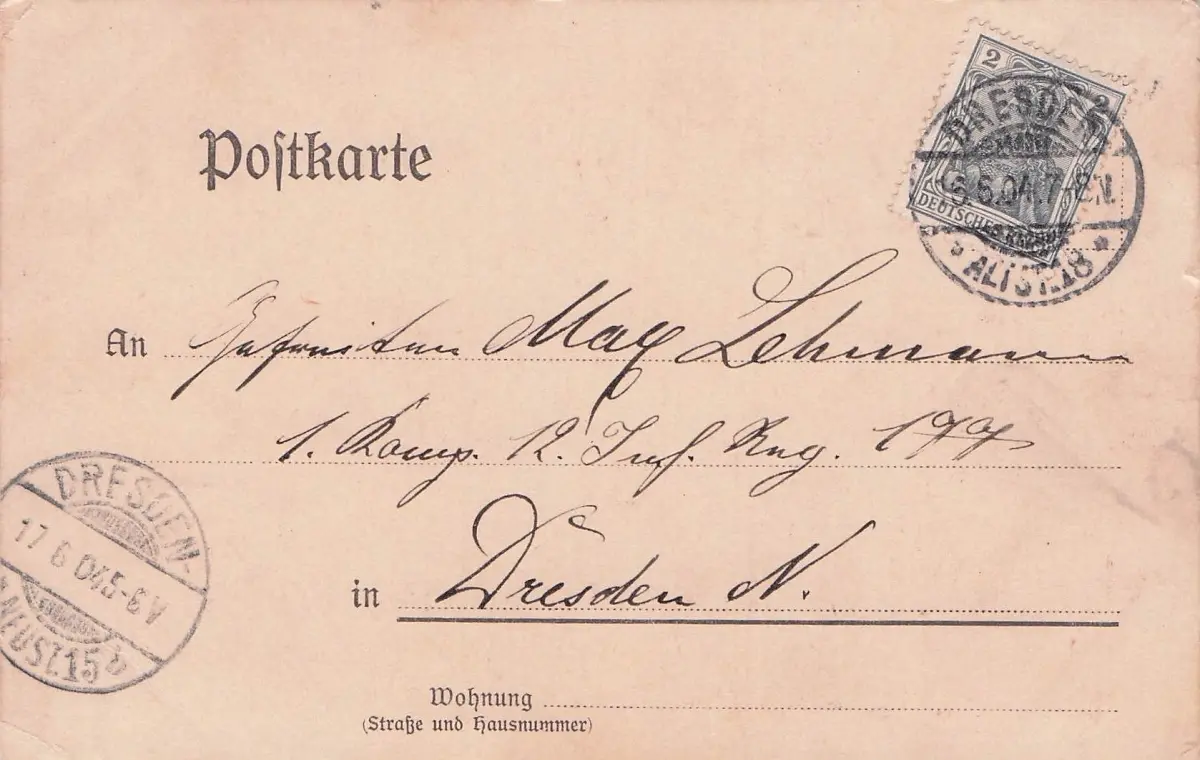 Postkarte
2 2
DEUTSCHES REICH
DRESDEN
6.04.7-8V.
* ALTST.18 *
An Gefreiten Max Lehmann
1. Komp. 12. Inf. Reg. 177
in Dresden N.
DRESDEN-
17 6 04.5-6V
NEUST.15 b
Wohnung
(Straße und Hausnummer)